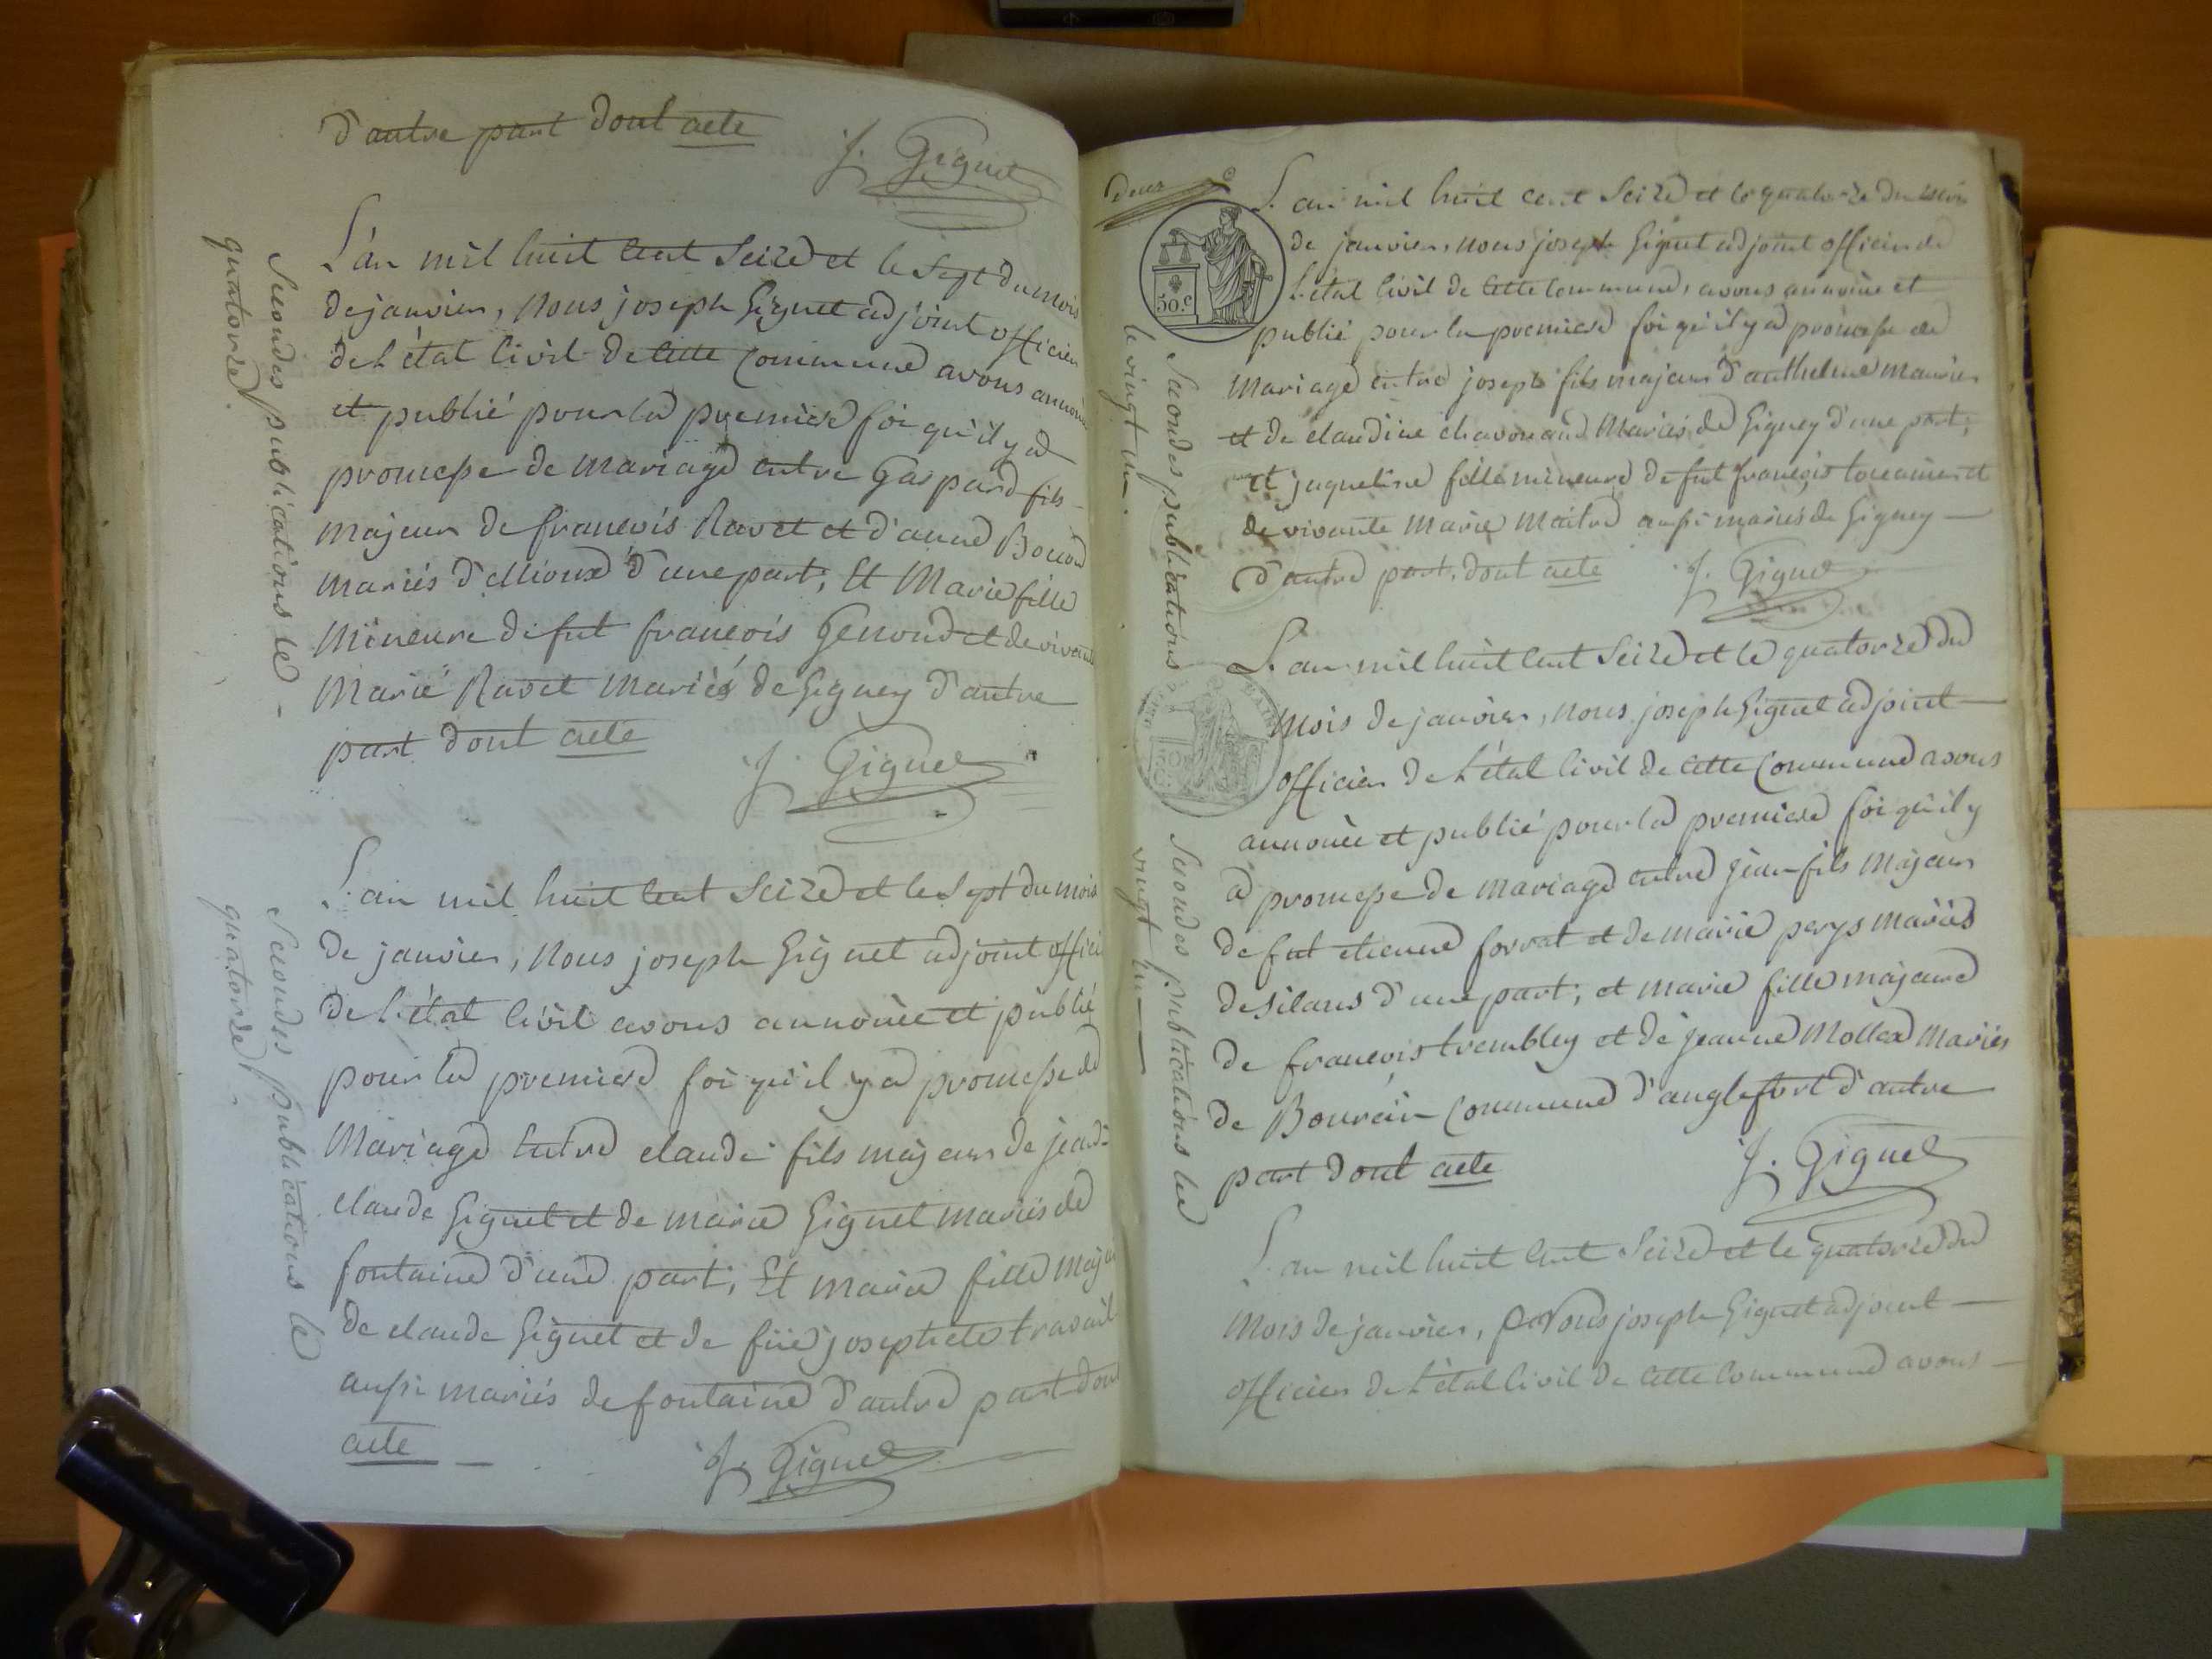 d'autre part dont acte
J. Giguet
L'an mil huit cent seize et le sept du mois
de janvier, nous joseph Giguet adjoint officier
de l'état civil de cette commune avons annoncé
et publié pour la premiere foi qu'il y a
promesse de mariage entre Gaspard fils
majeur de francois Ravet et d'anne
mariés d'une part, et Marie fille
mineure de fut francois Genoud et de vivante
Marie Ravet mariés de Gigney d'autre
part dont acte
J. Giguet
Secondes publications le
quatorze.
L'an mil huit cent seize et le sept du mois
de janvier, nous joseph Giguet adjoint offici
de l'état civil avons annoncée et publié
pour la premiere foi qu'il y a promesse de
Mariage entre claude fils majeur de jean
claude Giguet et de marie Giguet mariés de
fontaine d'une part, Et marie fille maj
de claude Giguet et de füe josephete travail
aussi mariés de fontaine d'autre part dont
acte
J. Giguet
Secondes publications le
quatorze.
deux
50.c
L'an mil huit cent seize et le quatorze du mois
de janvier, nous joseph Giguet adjoint officier de
l'état civil de cette commune, avons annoncé et
publié pour la premiere foi qu'il y a promesse de
mariage entre joseph fils majeur d'anthelme maurier
et de claudine chavonand Mariés de Gigney d'une part,
et jaqueline fille mineure de fut françois tocanier et
de vivante Marie Maitre aussi mariés de Gigney
d'autre part, dont acte
J. Giguet
Secondes publications
le vingt un.
L'an mil huit cent seize et le quatorze du
mois de janvier, nous joseph Giguet adjoint
officier de l'état civil de cette commune avons
annoncée et publié pour la premiere foi qu'il y
a promesse de mariage entre jean fils majeur
de fut etienne forrat et de marie perys mariés
de silans d'une part, et marie fille majeure
de francois trembley et de jeanne Mollex Mariés
de commune d'anglefort d'autre
part dont acte
J. Giguet
Secondes publications le
vingt un
L'an mil huit cent seize et le quatorze du
mois de janvier, Nous joseph Giguet adjoint
officier de l'état civil de cette commune avons